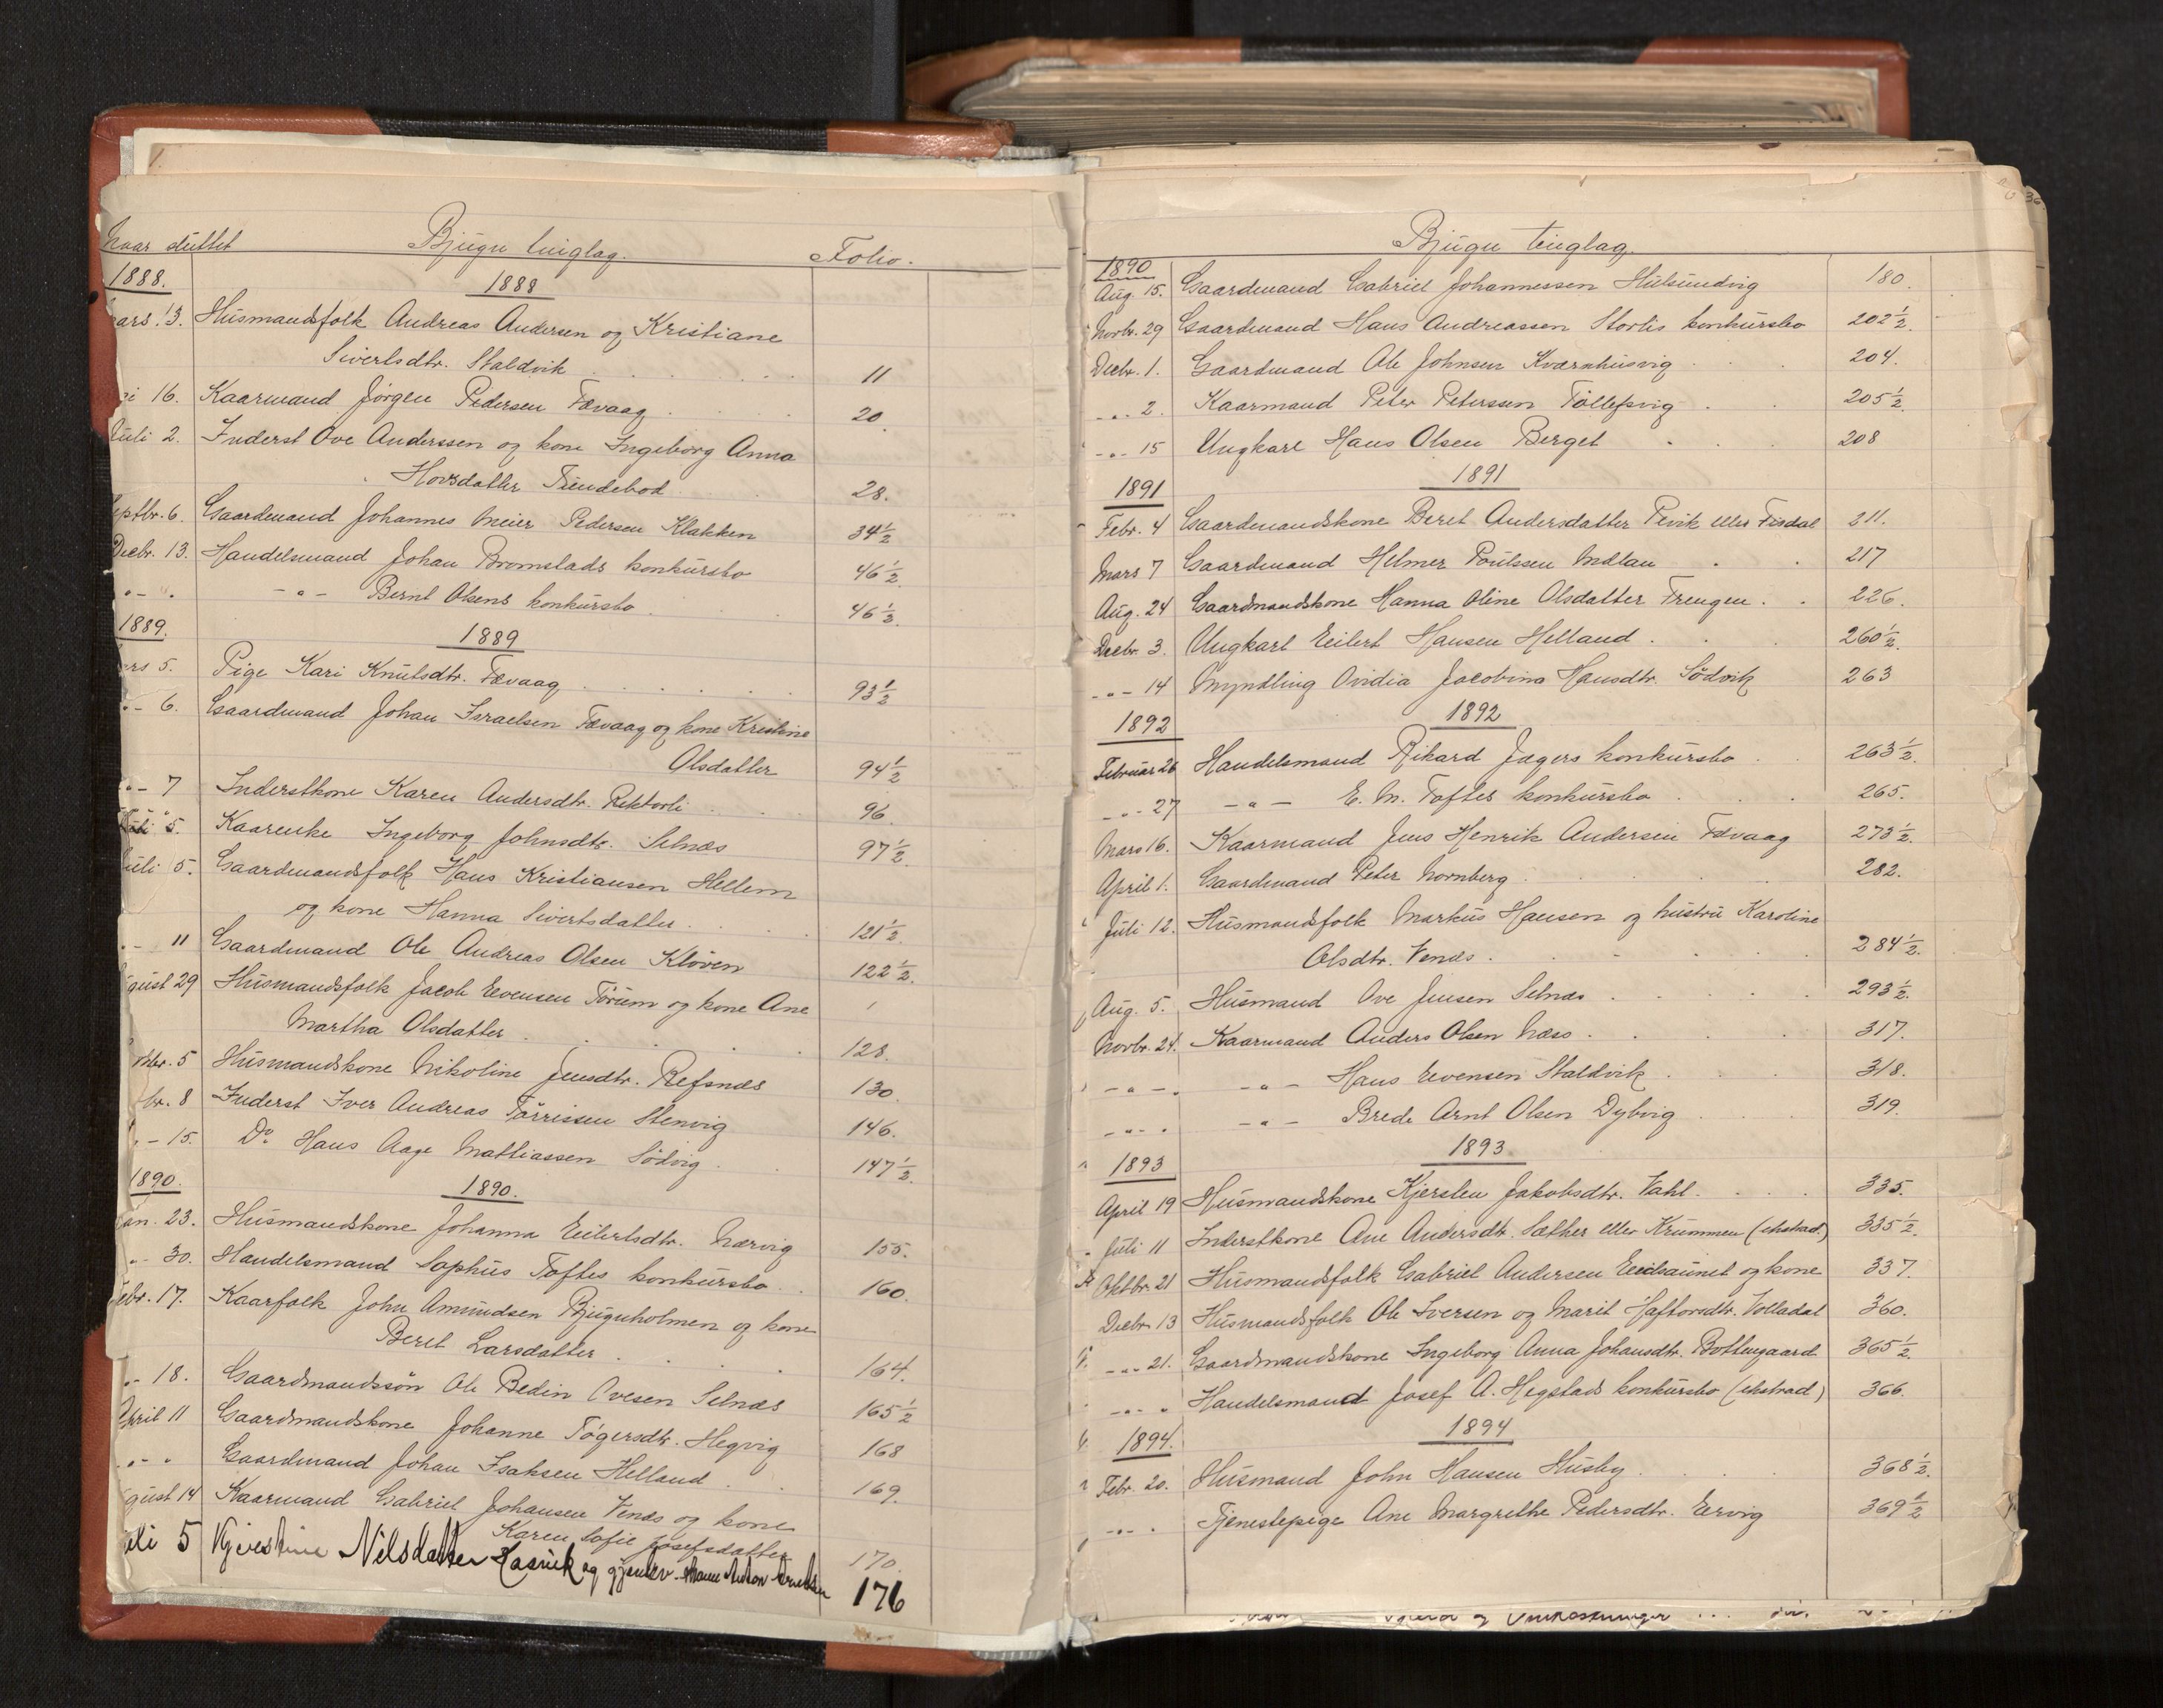 Naar sluttet Bjugn tinglag. Folio.
1888. 1888
Mars 13. Husmandsfolk Andreas Andersen og Kristiane
Sivertsdtr. Staldvik 11
16. Kaarmand Jørgen Pedersen Fævaag 20.
Juli 2. Inderst Ove Anderssen og kone Ingeborg Anna
Hovsdatter Tiendebod 28.
Septbr. 6. Gaardmand Johannes Meier Pedersen Klakken 34½
Decbr. 13. Handelsmand Johan Bromstads konkursbo 46½
" - " - " - Bernt Olsens konkursbo 46½.
1889. 1889
Mars 5. Pige Kari Knutsdtr. Fævaag 93½
" - 6. Gaardmand Johan Israelsen Fævaag og kone Kristine
Olsdatter 94½
" - 7 Inderstkone Karen Andersdtr. Rektorli 96.
5. Kaarenke Ingeborg Johnsdtr. Selnæs 97½.
Juli 5. Gaardmandsfolk Hans Kristiansen Hellem
og kone Hanna Sivertsdatter 121½.
" - 11 Gaardmand Ole Andreas Olsen Kløven 122½.
August 29 Husmandsfolk Jacob Evensen Tørum og kone Ane
Martha Olsdatter 128.
5 Husmandskone Nikoline Jensdtr. Refsnæs 130.
br. 8 Inderst Iver Andreas Tørrissen Stenvig 146.
" - 15. Do. Hans Aage Mathiassen Sødvig 147½.
1890. 1890.
Jan. 23. Husmandskone Johanna Eilertsdtr. Nærvig 155.
" - 30. Handelsmand Sophus Toftes konkursbo 160.
Febr. 17. Kaarfolk John Amundsen Bjugnholmen og kone
Beret Larsdatter 164.
" - 18. Gaardmandssøn Ole Bedin Ovesen Selnæs 165½
April 11 Gaardmandskone Johanne Tøgersdtr. Hegvig 168
" - " Gaardmand Johan Isaksen Helland 169.
August 14 Kaarmand Gabriel Johansen Venæs og kone
Karen Sofie Josefsdatter 170.
Juli 5 Kjerstine Nilsdatter Hasvik og gjenlev. Mann Anton 176
Bjugn tinglag.
1890
Aug. 15. Gaardmand Gabriel Johannessen Hulsundvig 180.
Novbr. 29 Gaardmand Hans Andreassen Storlis konkursbo 202½.
Decbr. 1. Gaardmand Ole Johnsen Kværnhusvig 204.
- " - 2. Kaarmand Peter Peterssen Tøllefsvig 205½.
- " - 15 Ungkarl Hans Olsen Berget 208
1891 1891
Febr. 4 Gaardmandskone Beret Andersdatter Pevik eller Fisdal 211.
Mars 7 Gaardmand Helmer Poulssen Mælan 217
Aug. 24 Gaardmandskone Hanna Oline Olsdatter Frengen 226.
Decbr. 3. Ungkarl Eilert Hansen Helland 260½.
- " - 14 Myndling Ovidia Jacobina Hansdtr. Sødvik 263
1892 1892
Februar 26 Handelsmand Rikard Jægers konkursbo 263½.
- " - 27 - " - E. M. Toftes konkursbo 265.
Mars 16. Kaarmand Jens Henrik Andersen Fævaag 273½.
April 1. Gaardmand Peter Nornberg 282.
Juli 12. Husmandsfolk Markus Hansen og hustru Karoline
Olsdtr. Venæs 284½.
Aug. 5. Husmand Ove Jensen Selnæs 293½.
Novbr. 24. Kaarmand Anders Olsen Næss 317.
- " - " - " - Hans Evensen Staldvik 318.
- " - " - " - Brede Arnt Olsen Dybvig 319.
1893 1893
April 19 Husmandskone Kjersten Jakobsdtr. Vahl 335.
Juli 11 Inderstkone Ane Andersdtr. Sæther eller Krummen (ekstrad.) 335½.
Oktbr. 21 Husmandsfolk Gabriel Andersen og kone 337.
Decbr. 13 Husmandsfolk Ole Iversen og Marit Haftorsdtr. Volladal 360.
- " - 21. Gaardmandskone Ingeborg Anna Johansdtr. Bottengaard 365½.
- " - " Handelsmand Josef A. Hegstads konkursbo (ekstrad) 366.
1894. 1894
Febr. 20. Husmand John Hansen Husby 368½.
- " - " Tjenestepige Ane Margrethe Pedersdtr. Ervig 369½